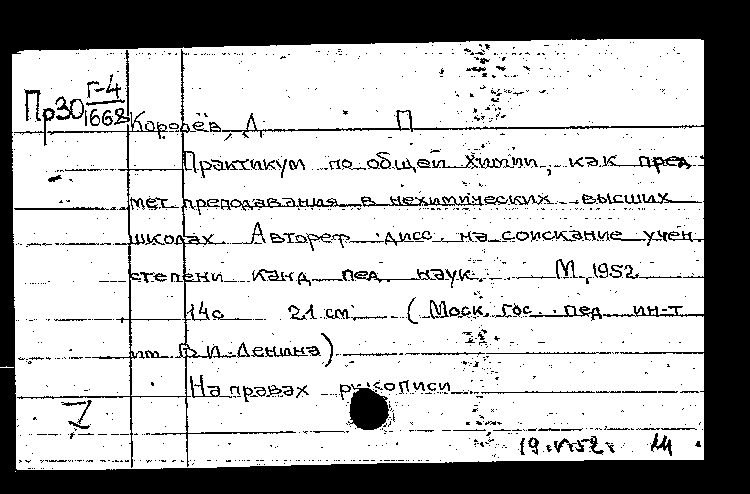 Пр30 Г-4/1668
Королёв, Д. П
Практикум по общей химии, как пред
мет преподавания в нехимических высших
школах. Автореф. дисс. на соискание учен.
степени канд. пед. наук. М, 1952
14с 21 см. (Моск. гос. пед. ин-т
им В. И. Ленина)
На правах рукописи